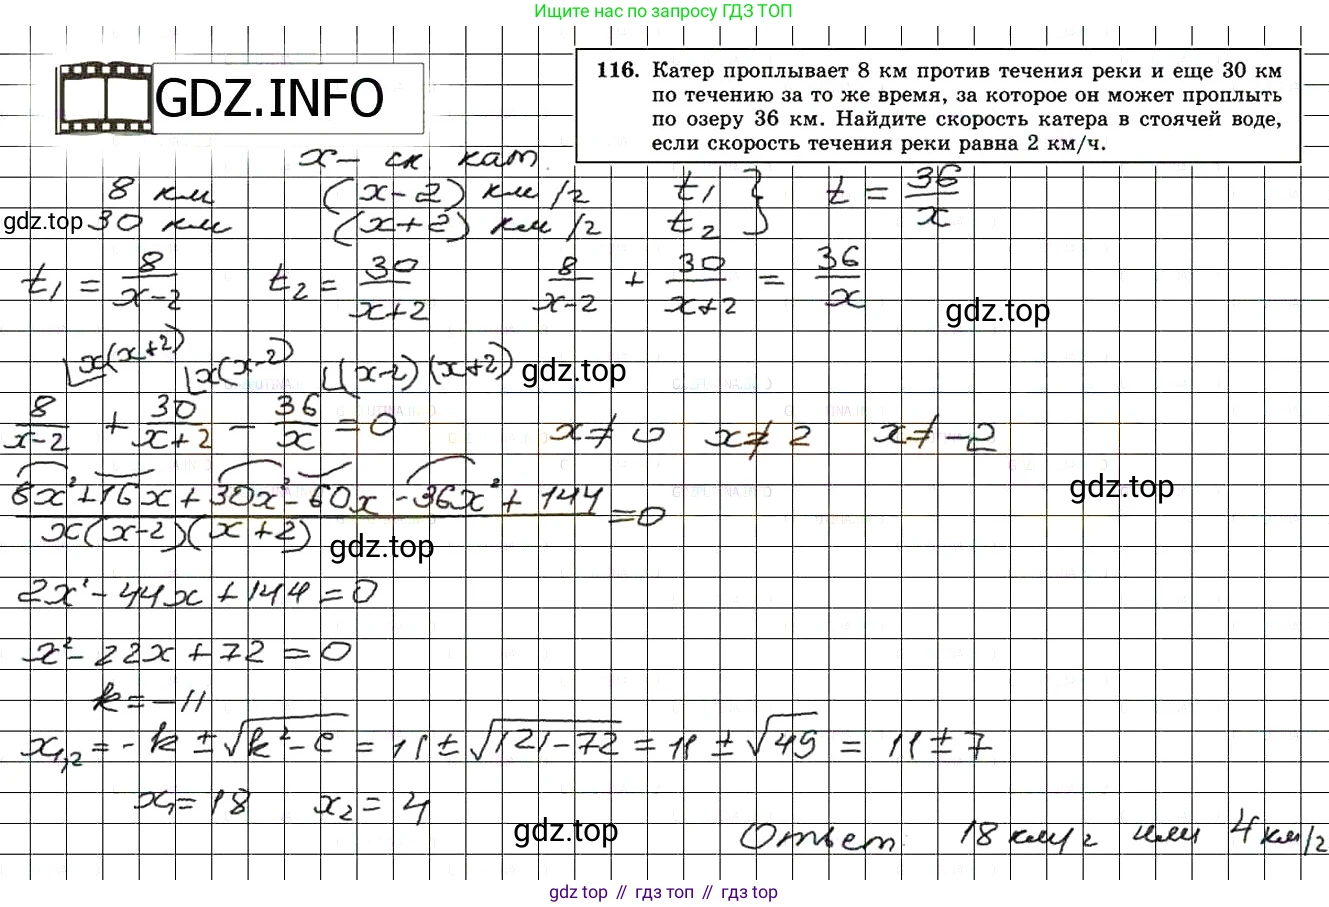 Ищите нас по запросу ГДЗ ТОП
GDZ.INFO
116. Катер проплывает 8 км против течения реки и еще 30 км
по течению за то же время, за которое он может проплыть
по озеру 36 км. Найдите скорость катера в стоячей воде,
если скорость течения реки равна 2 км/ч.
x – ск кат.
8 км (x-2) км/г t₁ } t = 36/x
gdz.top 30 км (x+2) км/г t₂
t₁ = 8/(x-2) t₂ = 30/(x+2) 8/(x-2) + 30/(x+2) = 36/x
gdz.top
x(x+2) x(x-2) (x-2)(x+2) gdz.top
8/(x-2) + 30/(x+2) - 36/x = 0 x≠0 x≠2 x≠-2
(8x²+16x+30x²-60x-36x²+144)/(x(x-2)(x+2)) = 0
gdz.top
gdz.top
2x²-44x+144=0
x²-22x+72=0
k=-11
x₁,₂ = -k ± √(k²-c) = 11 ± √(121-72) = 11 ± √49 = 11 ± 7
x₁=18 x₂=4
gdz.top
Ответ: 18 км/г или 4 км/г
gdz top // гдз топ // gdz top